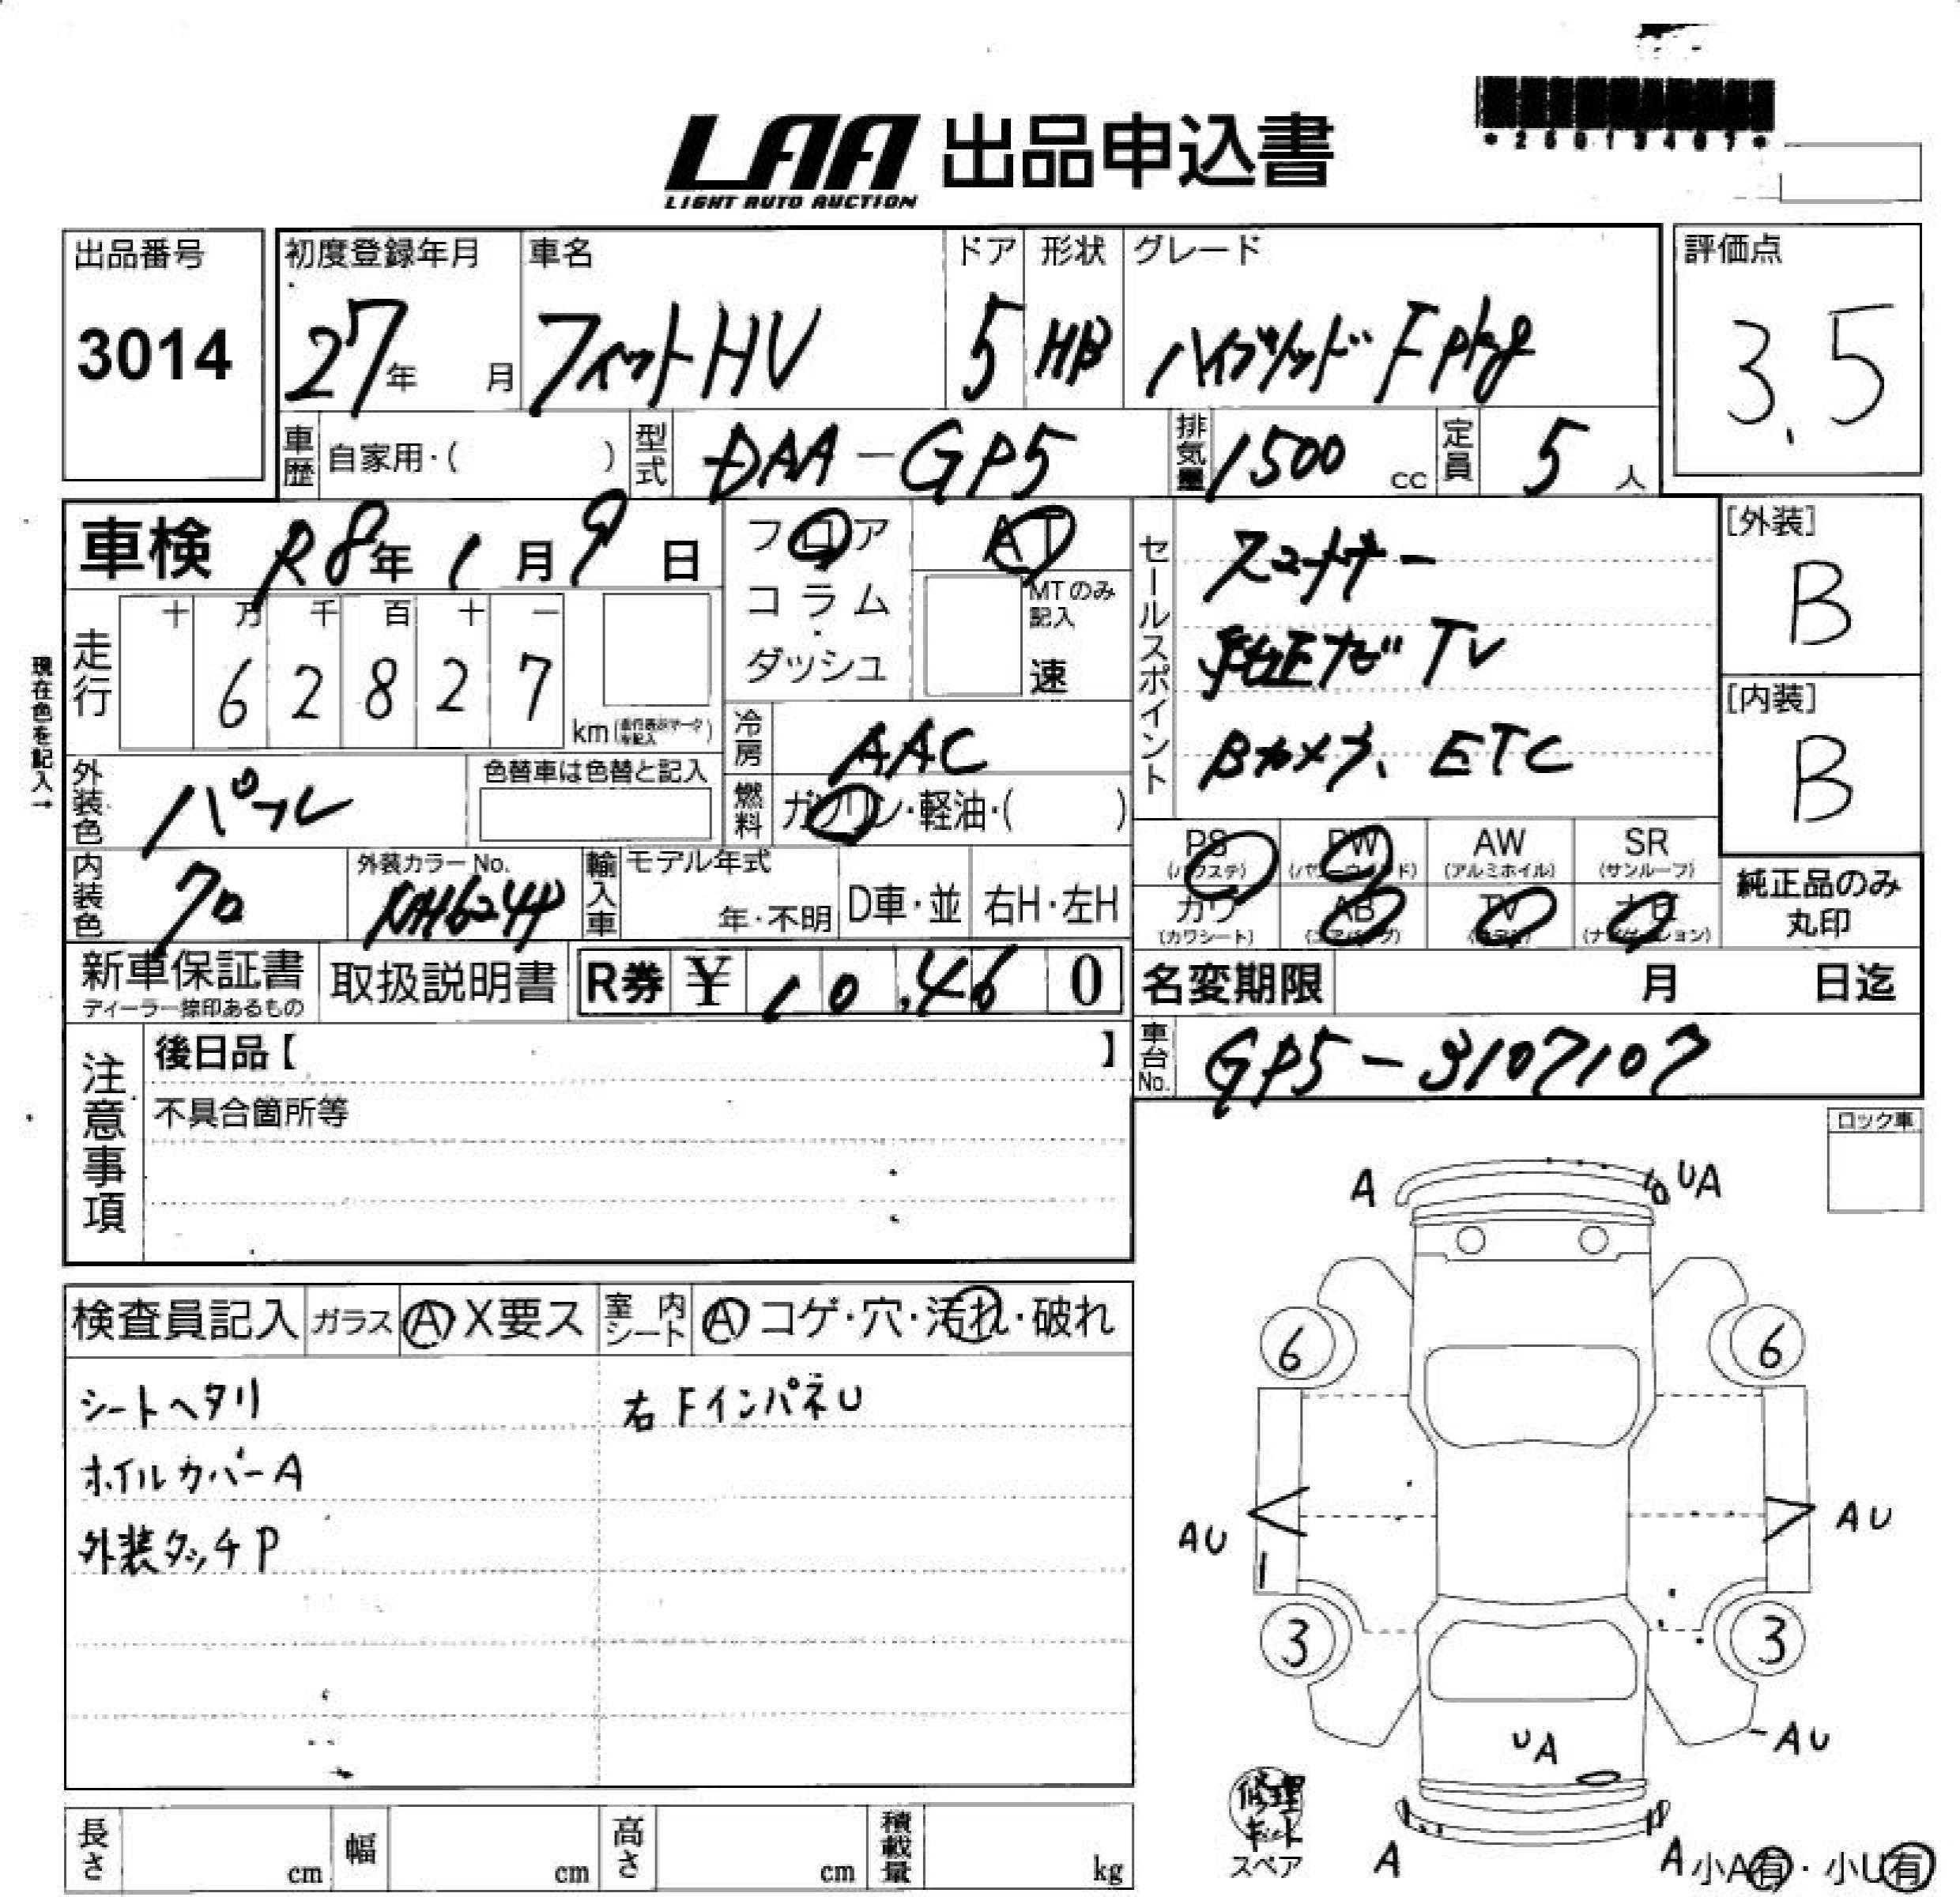 *25013407*
LAA 出品申込書
LIGHT AUTO AUCTION
出品番号 初度登録年月 車名 ドア 形状 グレード 評価点
3014 27年 月 フィットHV 5 HB ハイブリッド Fpkg 3.5
車歴 自家用・( ) 型式 DAA-GP5 排気量 1500 cc 定員 5 人
車検 R8年 1月 9日 フロア AT
コラム・ MTのみ記入
ダッシュ 速
セールスポイント
スマートキー
純正ナビ TV
Bカメラ、ETC
[外装]
B
[内装]
B
現在色を記入→
走行 十 万 千 百 十 一
6 2 8 2 7
km
冷房 AAC
外装色 パール 色替車は色替と記入 燃料 ガソリン・軽油・( )
PS PW AW SR
(パワステ) (パワーウインド) (アルミホイル) (サンルーフ)
カワ AB TV ナビ
(カワシート) (エアバッグ) (ナビゲーション)
純正品のみ
丸印
内装色 クロ 外装カラーNo. NH624P 輸入車 モデル年式 年・不明 D車・並 右H・左H
新車保証書 取扱説明書 R券 ¥ 10,46 0 名変期限 月 日迄
ディーラー捺印あるもの
車台No. GP5-3107107
注意事項
後日品【 】
不具合箇所等
ロック車
検査員記入 ガラス A X要ス 室内シート A コゲ・穴・汚れ・破れ
シートヘタリ 右FインパネU
ホイルカバーA
外装タッチP
A UA
6 6
AU AU
3 3
AU
UA
修理キット
スペア
A A 小A有・小U有
長さ cm 幅 cm 高さ cm 積載量 kg